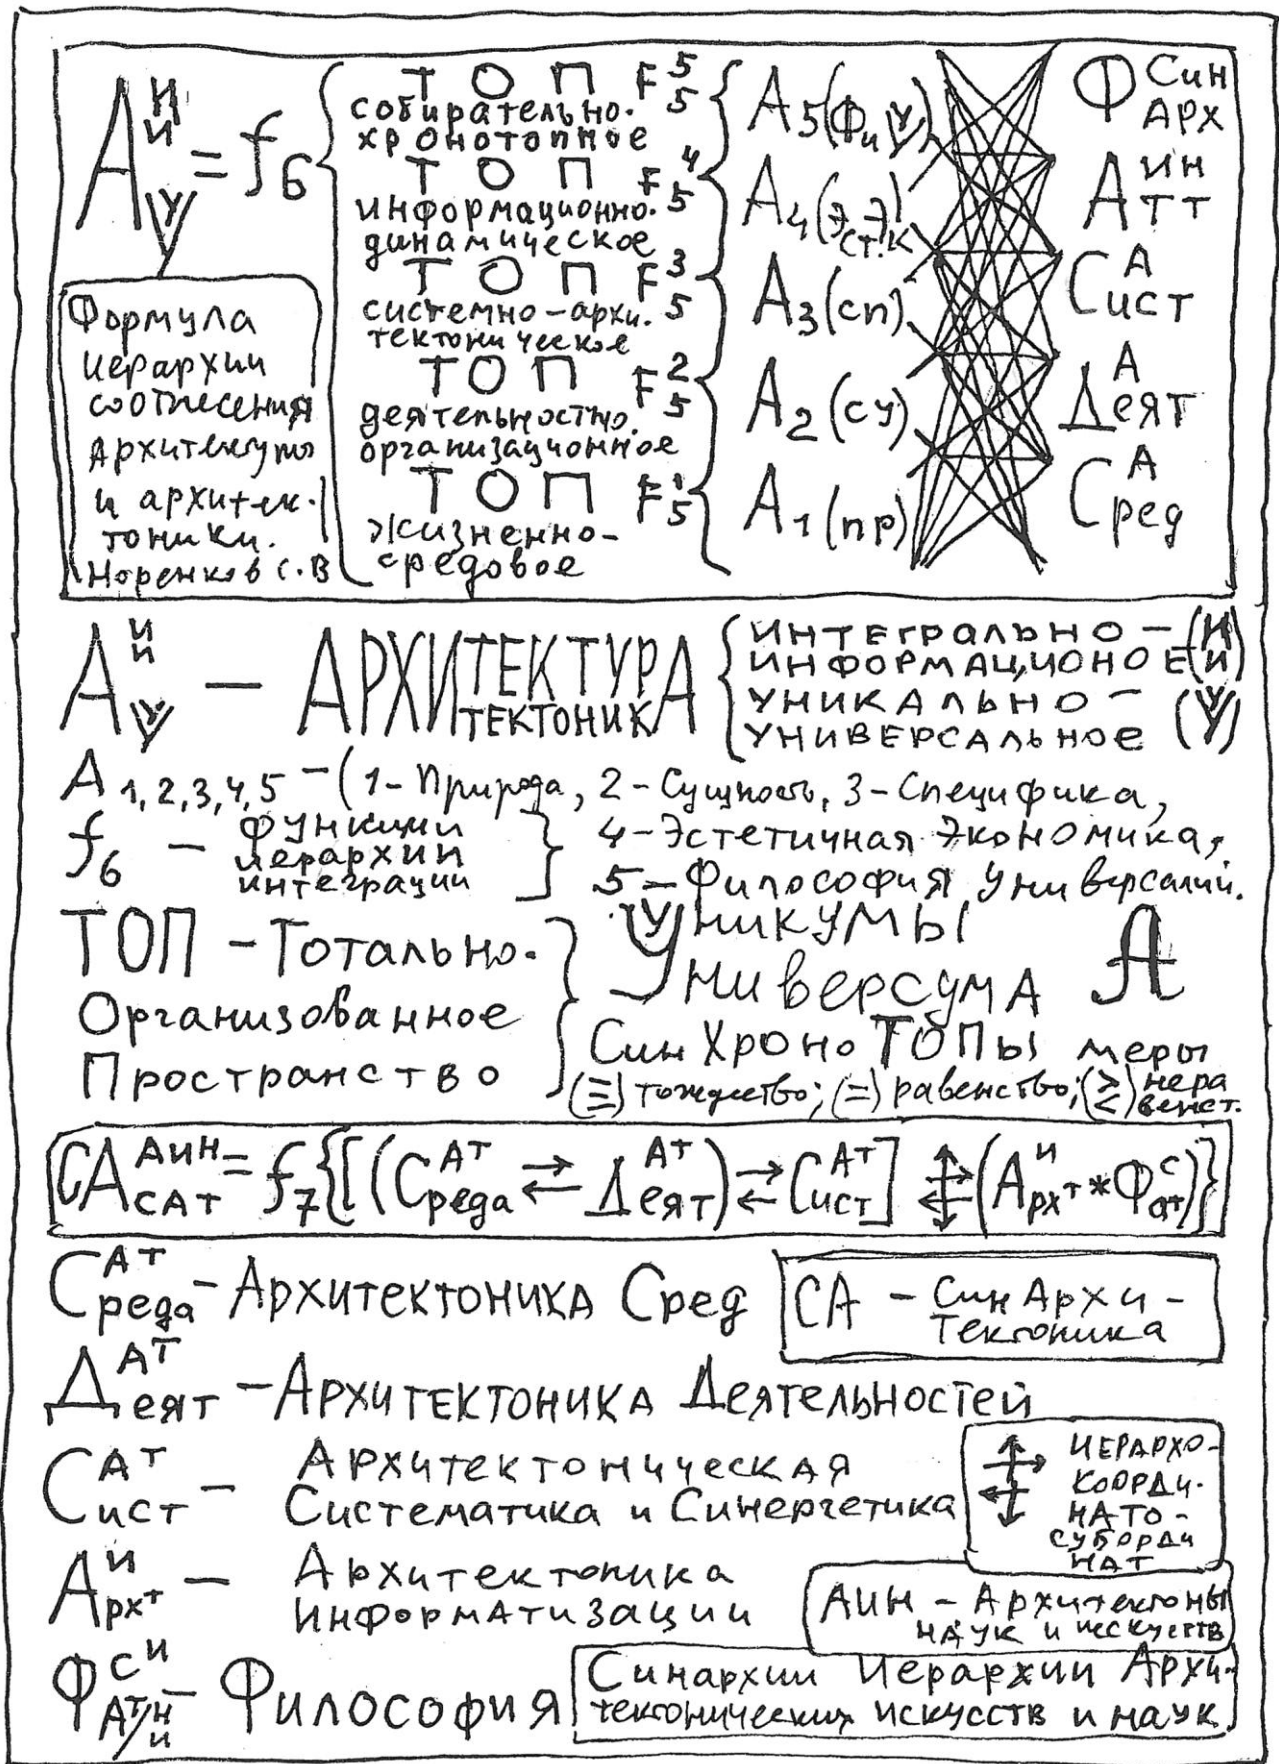 А И И У = f6
Т О П F 5 5
собирательно-
хронотопное
Т О П F 4 5
информационно-
динамическое
Т О П F 3 5
системно-архи-
тектоническое
Т О П F 2 5
деятельностно-
организационное
Т О П F 1 5
жизненно-
средовое
А5(Фи У)
А4(Эст. Эк)
А3(сп)
А2(су)
А1(пр)
Ф Син Арх
А ин тт
Сист А
Деят А
Сред А
Формула
иерархии
соотнесения
архитектуры
и архитек-
тоники.
Норенков С.В
А И И У — АРХИТЕКТУРА
ТЕКТОНИКА
ИНТЕГРАЛЬНО – (И)
ИНФОРМАЦИОНОЕ (И)
УНИКАЛЬНО –
УНИВЕРСАЛЬНОЕ (У)
А 1,2,3,4,5 – (1 – Природа, 2 – Сущность, 3 – Специфика,
4 – Эстетичная Экономика,
5 – Философия Универсалий.
f6 — функции
иерархии
интеграции
ТОП – Тотально-
Организованное
Пространство
Уникумы
Универсума А
СинХроноТОПы меры
(≡) тождество; (=) равенство; (≷) нера
венст.
СА АИН САТ = f7{[(Среда АТ ⇄ Деят АТ) ⇄ Сист АТ] (Архт И * Фат С)}
Среда АТ – Архитектоника Сред
СА – СинАрхи-
тектоника
Деят АТ – Архитектоника Деятельностей
Сист АТ – Архитектоническая
Систематика и Синергетика
ИЕРАРХО-
КООРДИ-
НАТО-
СУБОРДИ
НАТ
Архт И – Архитектоника
ИНФОРМАТИЗАЦИИ
АИН – Архитектоны
НАУК и искусств
Ф СИ АТ/Н и – Философия
Синархии Иерархии Архи-
тектонических искусств и наук